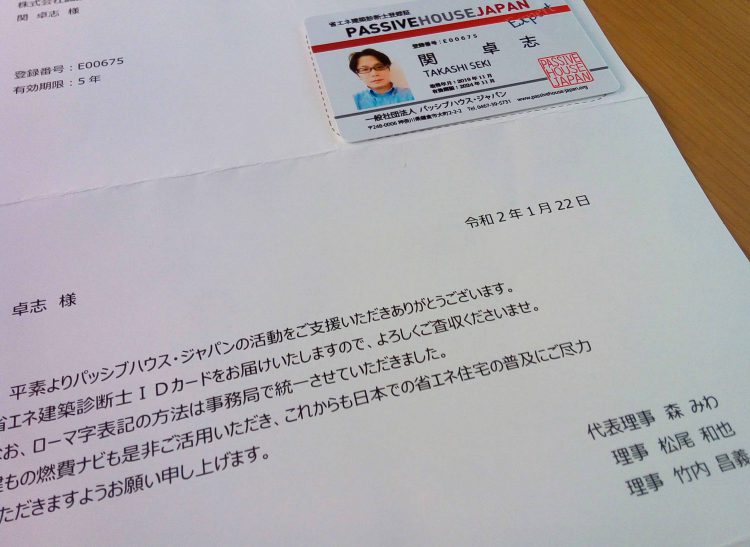 株式会社
関 卓志 様
登録番号：E00675
有効期限：5 年
省エネ建築診断士登録証
PASSIVEHOUSEJAPAN
Expert
登録番号：E00675
関 卓 志
TAKASHI SEKI
取得年月：2019 年 11 月
有効期限：2024 年 11 月
PASSIVE
HOUSE
JAPAN
一般社団法人 パッシブハウス・ジャパン www.passivehouse-japan.org
〒248-0006 神奈川県鎌倉市大町2-2-2 Tel 0467-39-5731
令和 2 年 1 月 22 日
卓志 様
平素よりパッシブハウス・ジャパンの活動をご支援いただきありがとうございます。
省エネ建築診断士ＩＤカードをお届けいたしますので、よろしくご査収くださいませ。
なお、ローマ字表記の方法は事務局で統一させていただきました。
もの燃費ナビも是非ご活用いただき、これからも日本での省エネ住宅の普及にご尽力
ただきますようお願い申し上げます。
代表理事 森 みわ
理事 松尾 和也
理事 竹内 昌義